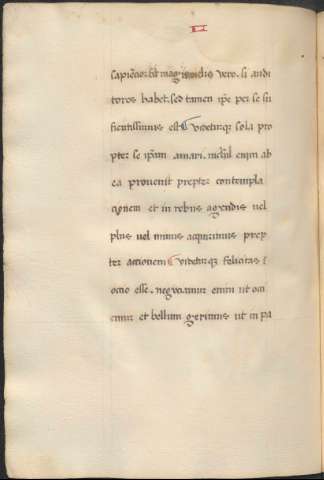 sapiẽcior sit magis melius vero. si audi
tores habet. sed tamen ip̃e per se su
ficientissimus est videturqꝫ sola pro
pter se ip̃am amari. nichil enim ab
ea provenit preter contempla
cionem et in rebus agendis vel
plus vel minus acquirimus prep
ter actionem videturqꝫ felicitas ĩ
ocio esse. negociamur enim ut oci
emur et bellum gerimus ut in pa